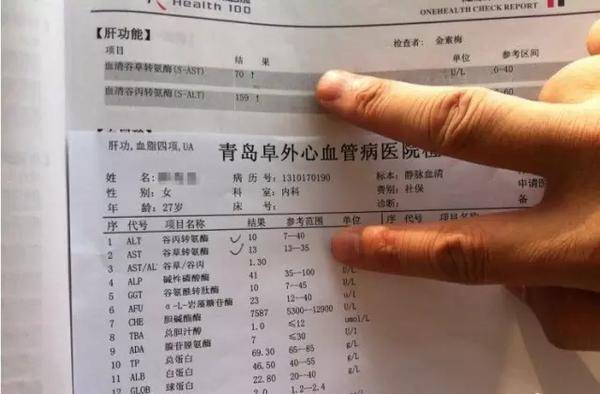 Health 100
ONEHEALTH CHECK REPORT
【肝功能】
检查者: 金素梅
项目 结 果 单位 参考区间
血清谷草转氨酶(S-AST) 70 ↑ U/L 0-40
血清谷丙转氨酶(S-ALT) 159 ↑ -60
肝功,血脂四项,UA 青岛阜外心血管病医院检
姓 名: 病 历 号: 1310170190 标 本: 静脉血清 申请医
性 别: 女 科 室: 内科 费 别: 社保 备
年 龄: 27岁 床 号: 诊断:
序 代号 项目名称 结果 参考范围 单位 序 代
1 ALT 谷丙转氨酶 10 7--40
2 AST 谷草转氨酶 13 13--35
3 AST/AL 谷草/谷丙 1.30
4 ALP 碱性磷酸酶 41 35--100 U/L
5 GGT 谷氨酰转肽酶 10 7--45 U/L
6 AFU α-L-岩藻糖苷酶 23 12--40 U/L
7 CHE 胆碱酯酶 7587 5300--12900 U/L
8 TBA 总胆汁酸 1.0 ≤12 umol/L
9 ADA 腺苷脱氨酶 7 ≤30 U/l
10 TP 总蛋白 69.30 65--85 g/L
11 ALB 白蛋白 46.50 40--55 g/L
12 GLOB 球蛋白 22.80 20--40 g/L
2.0 1.2--2.4